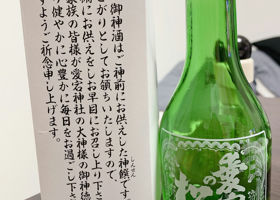 御神酒はご神前にお供えした神饌です
がりとしてお頒ちいたしますので、
にお供えをしお早目にお召し上り下さ
家族の皆様が愛宕神社の大神様の御神徳
り健やかに心豊かに毎日をお過ごし下さ
すようご祈念申し上げます。
しんせん
愛宕
の
松